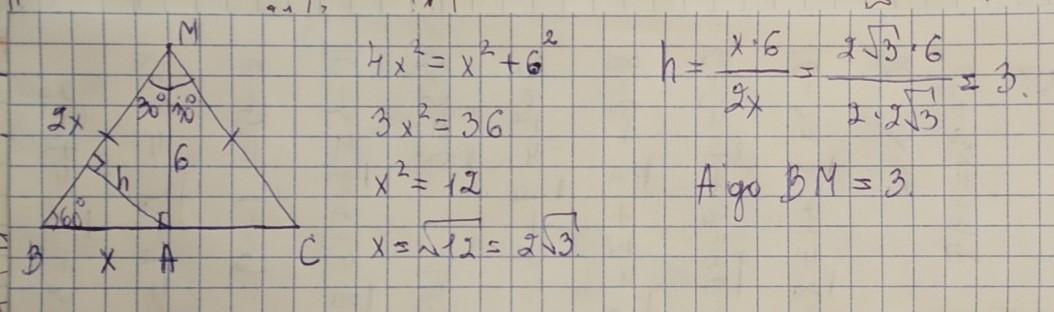 M
30° 30°
2x
6
h
60°
B x A C
4x² = x² + 6²
3x² = 36
x² = 12
x = √12 = 2√3.
h = x·6 / 2x = 2√3·6 / 2·2√3 = 3.
A до BM = 3.